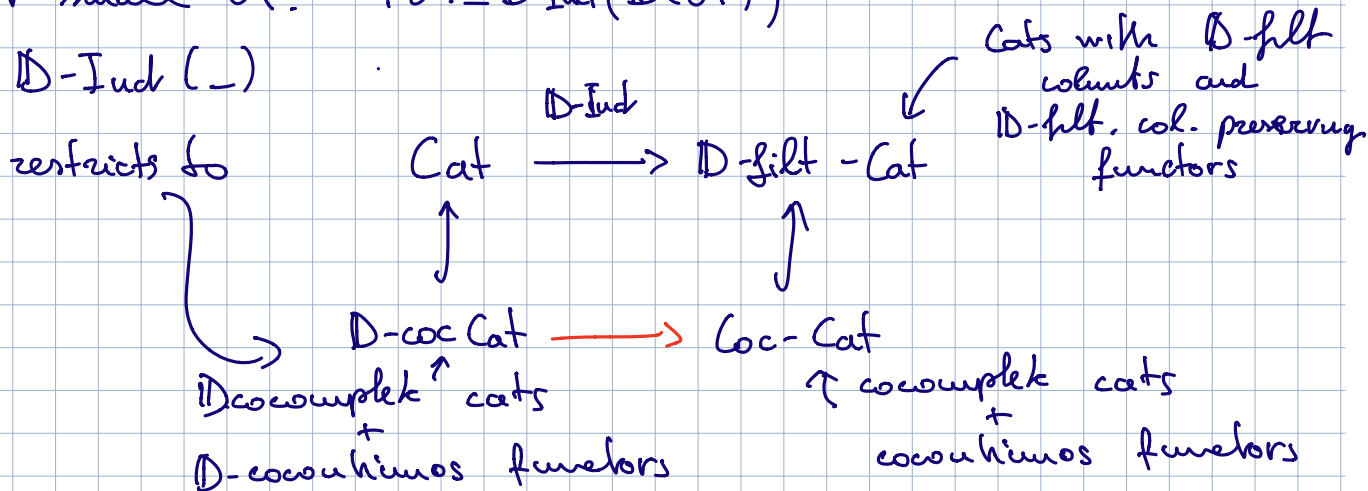 D-Ind (_)
restricts to
Cats with D-filt
colimits and
D-filt. col. preserving
functors
D-Ind
Cat → D-filt-Cat
D-coc Cat → Coc-Cat
D cocomplete cats
+
D-cocontinuous functors
cocomplete cats
+
cocontinuous functors